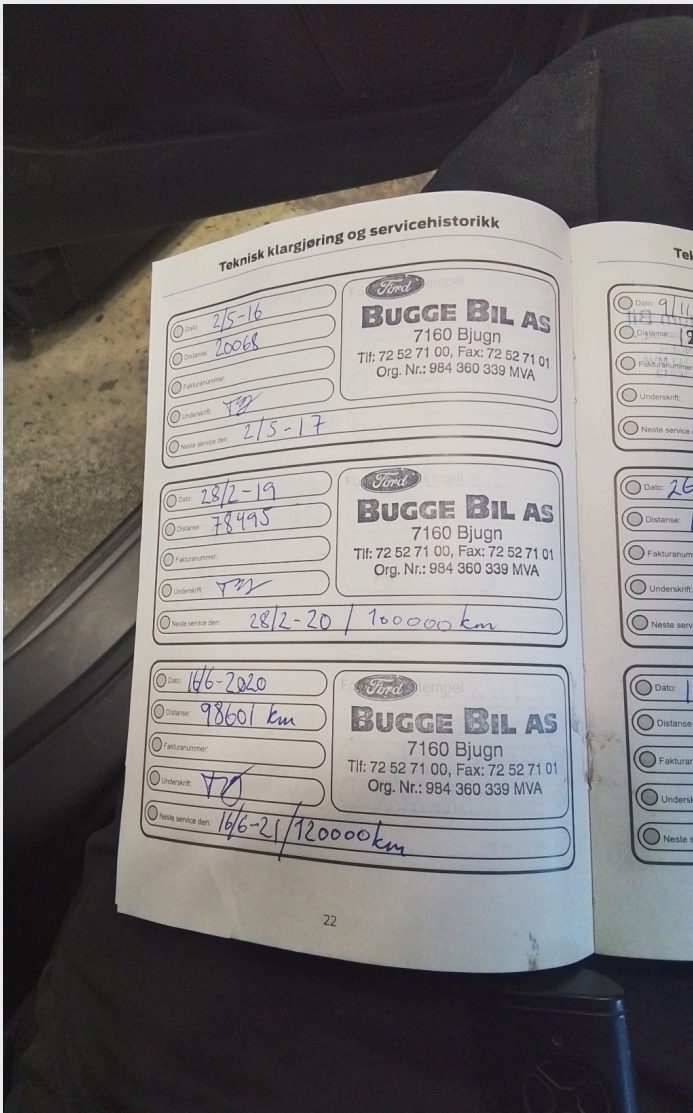 Teknisk klargjøring og servicehistorikk
Dato: 2/5-16
Distanse: 20068
Fakturanummer:
Underskrift:
Neste service den: 2/5-17
Ford
BUGGE BIL AS
7160 Bjugn
Tlf: 72 52 71 00, Fax: 72 52 71 01
Org. Nr.: 984 360 339 MVA
Dato: 28/2-19
Distanse: 78495
Fakturanummer:
Underskrift:
Neste service den: 28/2-20 / 100000 km
Ford
BUGGE BIL AS
7160 Bjugn
Tlf: 72 52 71 00, Fax: 72 52 71 01
Org. Nr.: 984 360 339 MVA
Dato: 16/6-2020
Distanse: 98601 km
Fakturanummer:
Underskrift:
Neste service den: 16/6-21/120000km
Ford
BUGGE BIL AS
7160 Bjugn
Tlf: 72 52 71 00, Fax: 72 52 71 01
Org. Nr.: 984 360 339 MVA
22
Dato:
Distanse:
Fakturanummer
Underskrift:
Neste service
Dato:
Distanse:
Fakturanum
Underskrift:
Neste serv
Dato:
Distanse
Faktura
Undersk
Neste s